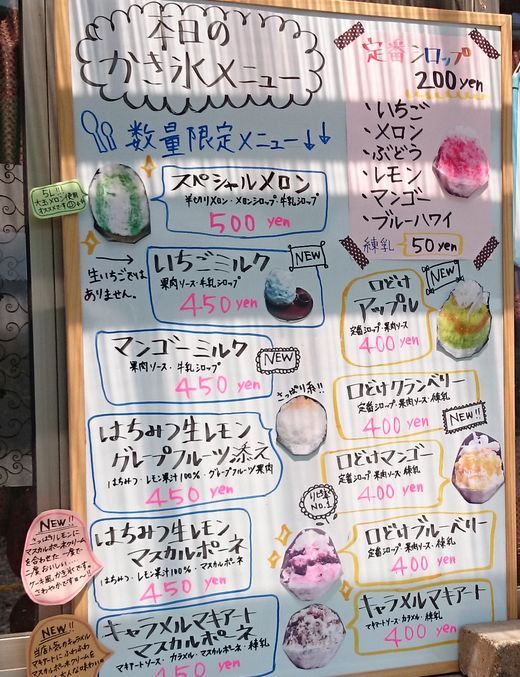 本日の
かき氷メニュー
定番シロップ
200yen
・いちご
・メロン
・ぶどう
・レモン
・マンゴー
・ブルーハワイ
練乳 50yen
数量限定メニュー↓↓
5L!!
大玉メロン使用
スペシャルメロン
半切りメロン・メロンシロップ・牛乳シロップ
500 yen
→
生いちごでは
ありません。
いちごミルク
NEW
果肉ソース・牛乳シロップ
450 yen
マンゴーミルク
NEW
果肉ソース・牛乳シロップ
450 yen
はちみつ生レモン
グレープフルーツ添え
はちみつ・レモン果汁100%・グレープフルーツ果肉
450 yen
さっぱり系!!
NEW!!
さっぱりレモンに
マスカルポーネクリーム
を合わせた一度で
二度おいしい、
ケーキ風かき氷です。
さわやかですョ〜!!
はちみつ生レモン
マスカルポーネ
はちみつ・レモン果汁100%・マスカルポーネ
450 yen
NEW!!
当店人気のキャラメル
マキアートにふわふわ
マスカルポーネクリームを
キャラメルマキアート
マスカルポーネ
マキアートソース・カラメル・マスカルポーネ・練乳
450 yen
口どけ
アップル
NEW
定番シロップ・果肉ソース
400 yen
口どけクランベリー
定番シロップ・果肉ソース・練乳
400 yen
NEW!!
口どけマンゴー
定番シロップ・果肉ソース・練乳
400 yen
リピ率
NO.1
口どけブルーベリー
定番シロップ・果肉ソース・練乳
400 yen
キャラメルマキアート
マキアートソース・カラメル・練乳
400 yen